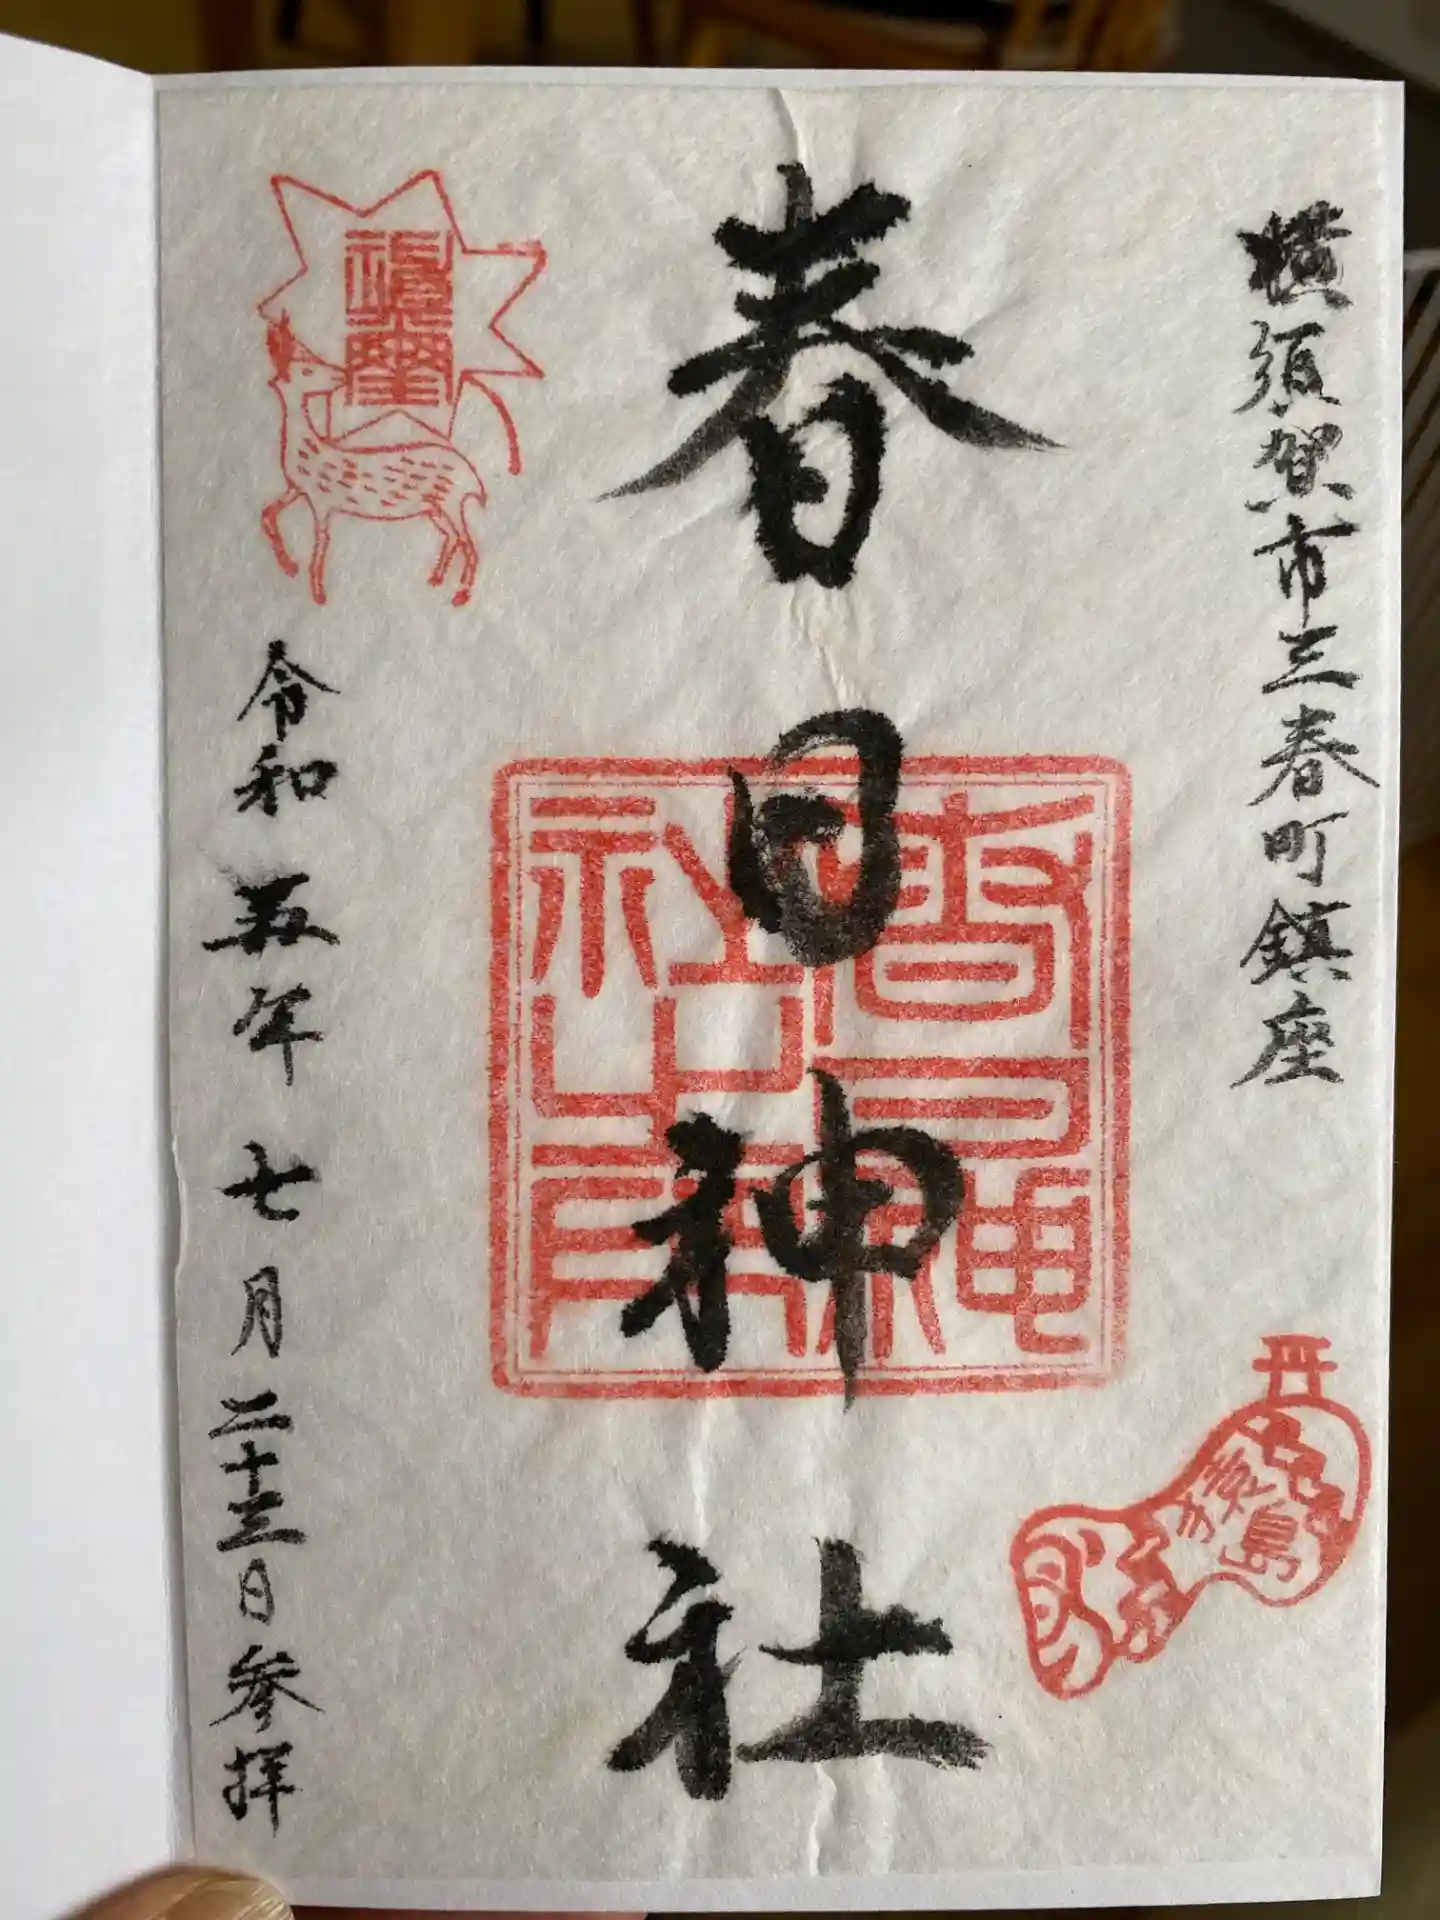 横須賀市三春町鎮座
春日神社
春日神社之印
猿島
令和五年七月二十三日参拝